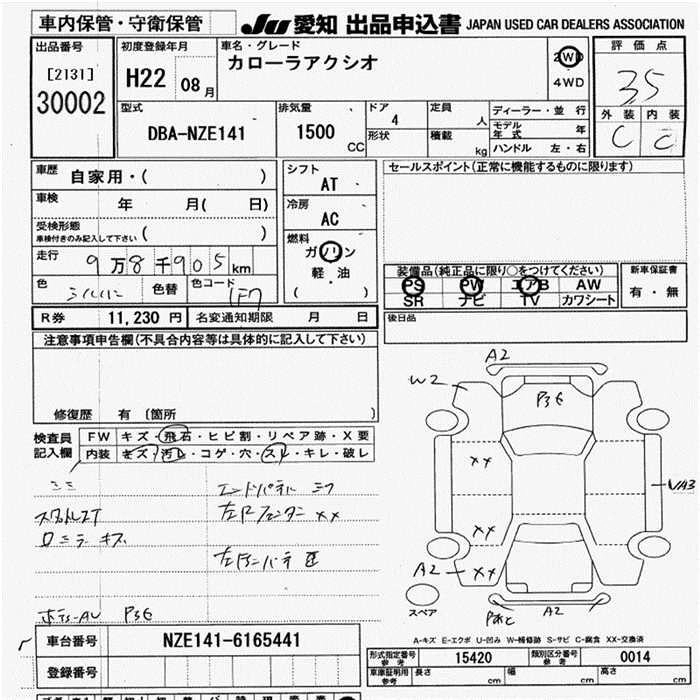 車内保管・守衛保管
JU 愛知 出品申込書 JAPAN USED CAR DEALERS ASSOCIATION
出品番号
[2131]
30002
初度登録年月
H22 08月
車名・グレード
カローラアクシオ
2WD
4WD
評価点
3.5
外装 内装
C C
型式
DBA-NZE141
排気量
1500
CC
ドア
4
形状
定員
人
積載
kg
ディーラー・並行
モデル年式 年
ハンドル 左・右
車歴
自家用・( )
車検
年 月( 日)
受検形態
車検付きのみ記入して下さい ( )
走行
9万8千905km
色
シルバー
色替
色コード
1F7
シフト
AT
冷房
AC
燃料
ガソリン
軽・油
( )
セールスポイント(正常に機能するものに限ります)
装備品(純正品に限り○をつけてください)
PS PW エアB AW
SR ナビ TV カワシート
新車保証書
有・無
後日品
R券 11,230円 名変通知期限 月 日
注意事項申告欄(不具合内容等は具体的に記入して下さい)
修復歴 有 〔箇所 〕
検査員記入欄
FW キズ・飛石・ヒビ割・リペア跡・X要
内装 キズ・汚レ・コゲ・穴・スレ・キレ・破レ
ロミラーキズ
A2
W2
P3E
XX
VA3
XX
A2 XX
スペア
A2
A-キズ E-エクボ U-凹み W-補修跡 S-サビ C-腐食 XX-交換済
車台番号 NZE141-6165441
登録番号
形式指定番号 参考 15420 類別区分番号 参考 0014
車庫証明用 参考 長さ cm 幅 cm 高さ cm